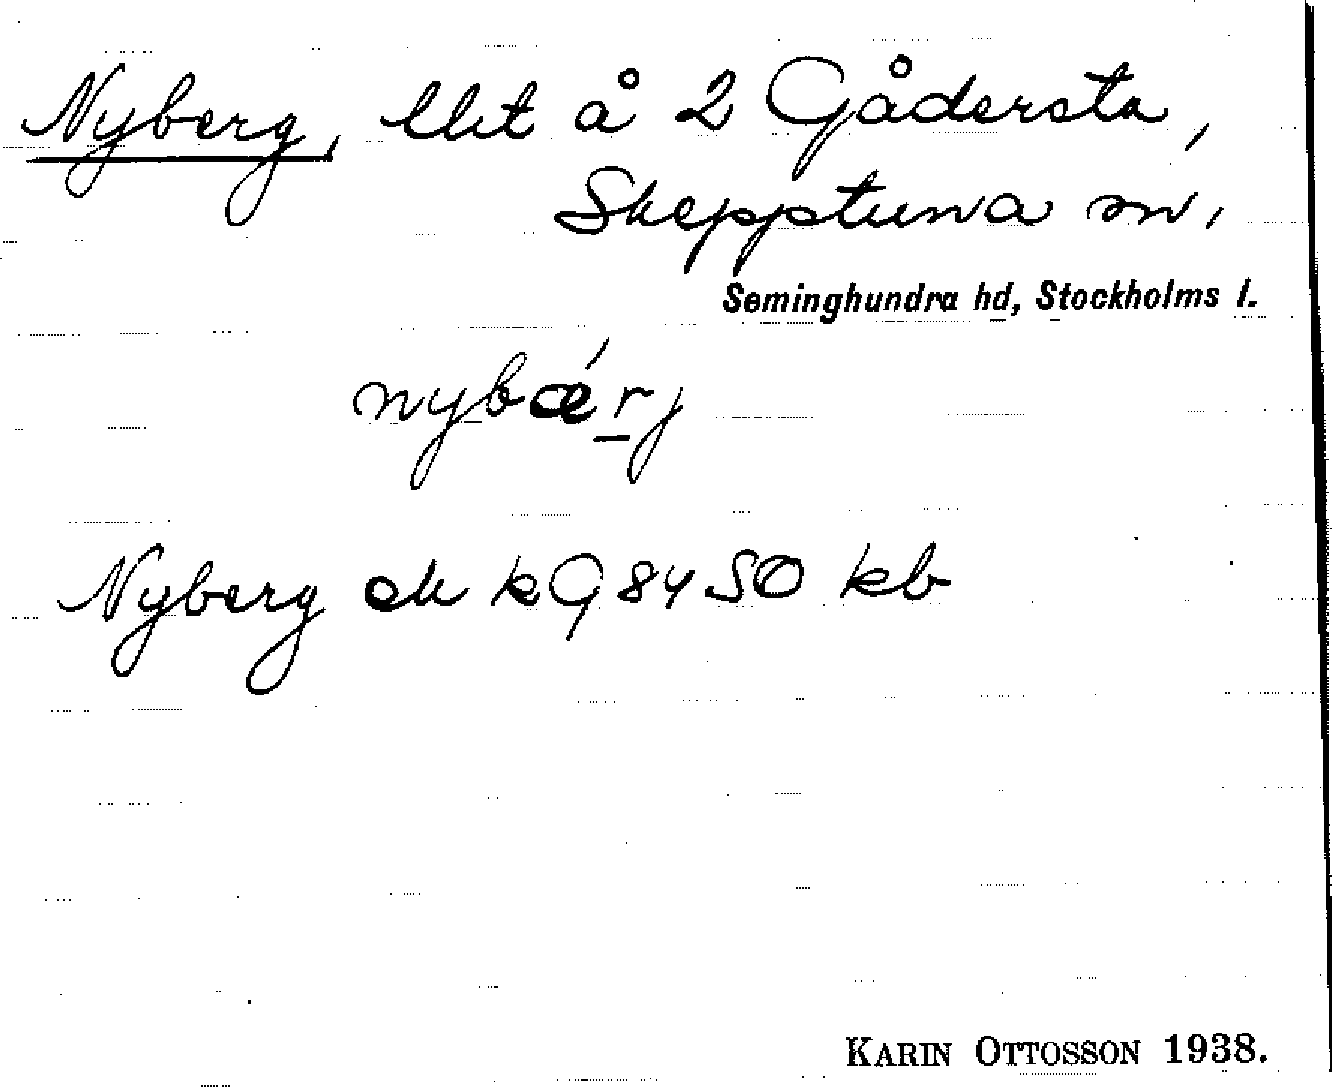 Nyberg, lht å 2 Gådersta,
Skepptuna sn,
Seminghundra hd, Stockholms l.
nybǽrj
Nyberg ek kG 8450 kb
KARIN OTTOSSON 1938.